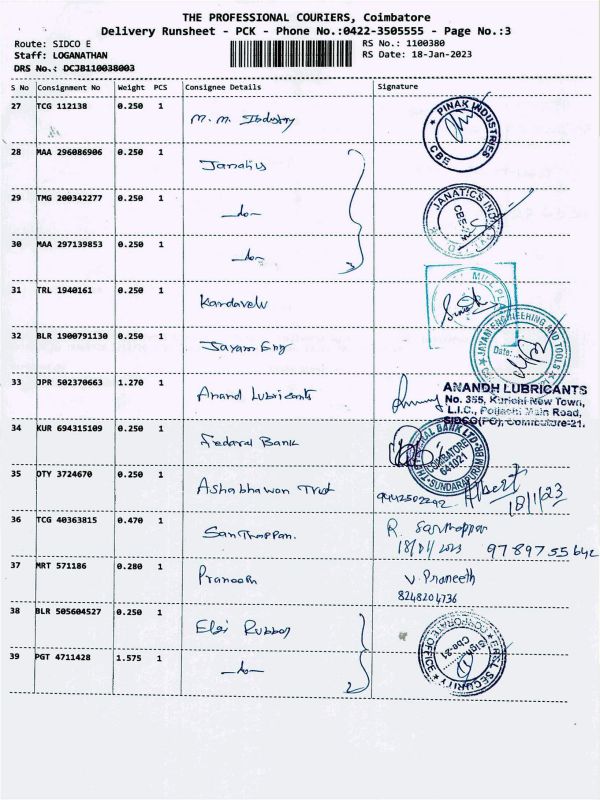 THE PROFESSIONAL COURIERS, Coimbatore
Delivery Runsheet - PCK - Phone No.:0422-3505555 - Page No.:3
Route: SIDCO E
RS No.: 1100380
Staff: LOGANATHAN
RS Date: 18-Jan-2023
DRS No.: DCJB110038003
S No Consignment No Weight PCS Consignee Details Signature
27 TCG 112138 0.250 1 M.M. Industry
PINAK INDUSTRIES
CBE
28 MAA 296086906 0.250 1 Janatics
29 TMG 200342277 0.250 1 -do-
JANATICS IND
30 MAA 297139853 0.250 1 -do-
31 TRL 1940161 0.250 1 Kandavelu
MILL
32 BLR 1900791130 0.250 1 Jayam Eng
JAYAM ENGINEERING AND TOOLS
Date:
33 JPR 502370663 1.270 1 Anand Lubricants
ANANDH LUBRICANTS
No. 355, Kurichi New Town,
L.I.C., Pollachi Main Road,
SIDCO(PO), Coimbatore-21.
34 KUR 694315109 0.250 1 Federal Bank
COIMBATORE
641021
SUNDARAPURAM BR
35 OTY 3724670 0.250 1 Ashabhawan Trust
9442502292 Albert
18/1/23
36 TCG 40363815 0.470 1 Santhappan.
R. Santhappan
18/01/2023 9789755642
37 MRT 571186 0.280 1 Praneeth
V. Praneeth
8248204736
38 BLR 505604527 0.250 1 Elgi Rubber
CORPORATE OFFICE
Sign
Cbe-21
ERSL SECURITY
39 PGT 4711428 1.575 1 -do-